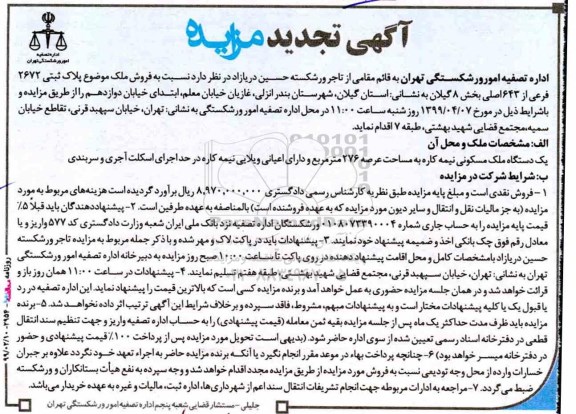 آگهی تجدید مزایده
اداره تصفیه
امور ورشکستگی تهران
اداره تصفیه امور ورشکستگی تهران به قائم مقامی از تاجر ورشکسته حسین دریازاد در نظر دارد نسبت به فروش ملک موضوع پلاک ثبتی ۲۶۷۲
فرعی از ۶۴۳ اصلی بخش ۸ گیلان به نشانی: استان گیلان، شهرستان بندر انزلی، غازیان خیابان معلم، ابتدای خیابان دوازدهم را از طریق مزایده و
باشرایط ذیل در مورخ ۱۳۹۹/۰۴/۰۷ روز شنبه ساعت ۱۱:۰۰ در محل اداره تصفیه امور ورشکستگی به نشانی: تهران، خیابان سپهبد قرنی، تقاطع خیابان
سمیه، مجتمع قضایی شهید بهشتی، طبقه ۷ اقدام نماید.
الف: مشخصات ملک و محل آن
یک دستگاه ملک مسکونی نیمه کاره به مساحت عرصه ۲۷۶ مترمربع و دارای اعیانی ویلایی نیمه کاره در حد اجرای اسکلت آجری و سربندی
ب: شرایط شرکت در مزایده
۱- فروش نقدی است و مبلغ پایه مزایده طبق نظریه کارشناس رسمی دادگستری ۸,۹۷۰,۰۰۰,۰۰۰ ریال برآورد گردیده است هزینه‌های مربوط به مورد
مزایده (به جز مالیات نقل و انتقال و سایر دیون مورد مزایده که به عهده فروشنده است) بالمناصفه به عهده طرفین است. ۲- پیشنهاددهندگان باید قبلاً ۵٪
قیمت پایه مزایده را به حساب جاری شماره ورشکستگان اداره تصفیه نزد بانک ملی ایران شعبه وزارت دادگستری کد ۵۷۷ واریز و یا
معادل رقم فوق چک بانکی اخذ و ضمیمه پیشنهاد خود نمایند. ۳- پیشنهادات باید در پاکت لاک و مهر شده و با ذکر جمله مربوط به مزایده تاجر ورشکسته
حسین دریازاد بامشخصات کامل و محل اقامت پیشنهاددهنده در روی پاکت تا ساعت ۱۰:۰۰ صبح روز مزایده به دبیرخانه اداره تصفیه امور ورشکستگی
تهران به نشانی: تهران، خیابان سپهبد قرنی، مجتمع قضایی شهید بهشتی، طبقه هفتم تسلیم نمایند. ۴- پیشنهادات در ساعت ۱۱:۰۰ همان روز باز و
قرائت خواهد شد و در همان جلسه مزایده حضوری به عمل خواهد آمد و برنده مزایده کسی است که بالاترین قیمت را پیشنهاد نماید. این اداره تصفیه در رد
یا قبول یک یا کلیه پیشنهادات مختار است و به پیشنهادات مبهم، مشروط، فاقد سپرده و برخلاف شرایط این آگهی ترتیب اثر داده نخواهد شد. ۵- برنده
مزایده باید ظرف مدت حداکثر یک ماه پس از جلسه مزایده بقیه ثمن معامله (قیمت پیشنهادی) را به حساب اداره تصفیه واریز و جهت تنظیم سند انتقال
قطعی در دفترخانه اسناد رسمی تعیین شده از سوی اداره حاضر شود. (بدیهی است تحویل مورد مزایده پس از پرداخت ۱۰۰٪ قیمت پیشنهادی و حضور
در دفترخانه میسر خواهد بود) ۶- چنانچه پرداخت بهاء در موعد مقرر انجام نگیرد یا آنکه برنده مزایده حاضر به اجراء تعهد خود نگردد علاوه بر جبران
خسارات وارده از محل وجه تودیعی نسبت به فروش مورد مزایده از طریق مزایده مجدد اقدام خواهد شد و وجه سپرده به نفع هیأت بستانکاران و ورشکسته
ضبط می گردد. ۷- مراجعه به ادارات مربوطه جهت انجام تشریفات انتقال سند اعم از شهرداری‌ها، اداره ثبت، مالیات و غیره به عهده خریدار می‌باشد.
جلیلی - مستشار قضایی شعبه پنجم اداره تصفیه امور ورشکستگی تهران